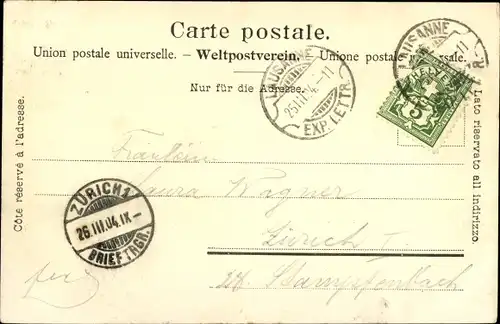 Carte postale.
Union postale universelle. – Weltpostverein. – Unione postale universale.
Nur für die Adresse.
LAUSANNE
25.III.04.–11
EXP. LETTR.
LAUSANNE
–11
HELVETIA
5
Côté réservé à l'adresse.
Lato riservato all indirizzo.
Fräulein
Laura Wagner
Zürich I
Stampfenbach
ZÜRICH 1
26.III.04.IX–
BRIEFTRGR.